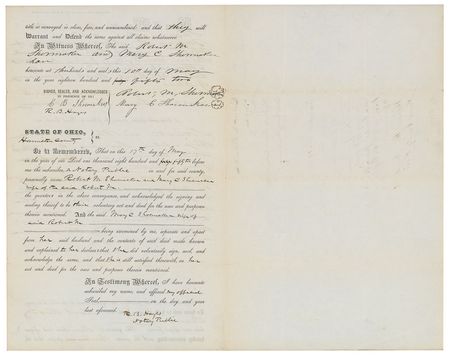 title so conveyed is clear, free, and unincumbered: and that they will
Warrant and Defend the same against all claims whatsoever.
In Witness Whereof, The said Robert M
Shoemaker and Mary C Shoemaker
have
hereunto set their hands and seals this 17th day of May
in the year eighteen hundred and fifty two
SIGNED, SEALED, AND ACKNOWLEDGED
IN PRESENCE OF US:
Robert M. Shoemaker
Mary C Shoemaker
R. B. Hayes
STATE OF OHIO,
Hamilton County ss
Be it Remembered, That on this 17th day of May
in the year of our Lord one thousand eight hundred and before
me the subscriber a Notary Public in and for said county,
personally came Robert M Shoemaker and Mary C Shoemaker
wife of the said Robert M.
the grantors in the above conveyance, and acknowledged the signing and
sealing thereof to be their voluntary act and deed for the uses and purposes
therein mentioned. And the said Mary C Shoemaker wife of
said Robert M
being examined by me, separate and apart
from her said husband and the contents of said deed made known
and explained to her declares that she did voluntarily sign, seal, and
acknowledge the same, and that she is still satisfied therewith, as her
act and deed for the uses and purposes therein mentioned.
In Testimony Whereof, I have hereunto
subscribed my name, and affixed my official
Seal on the day and year
last aforesaid.
R. B. Hayes
Notary Public